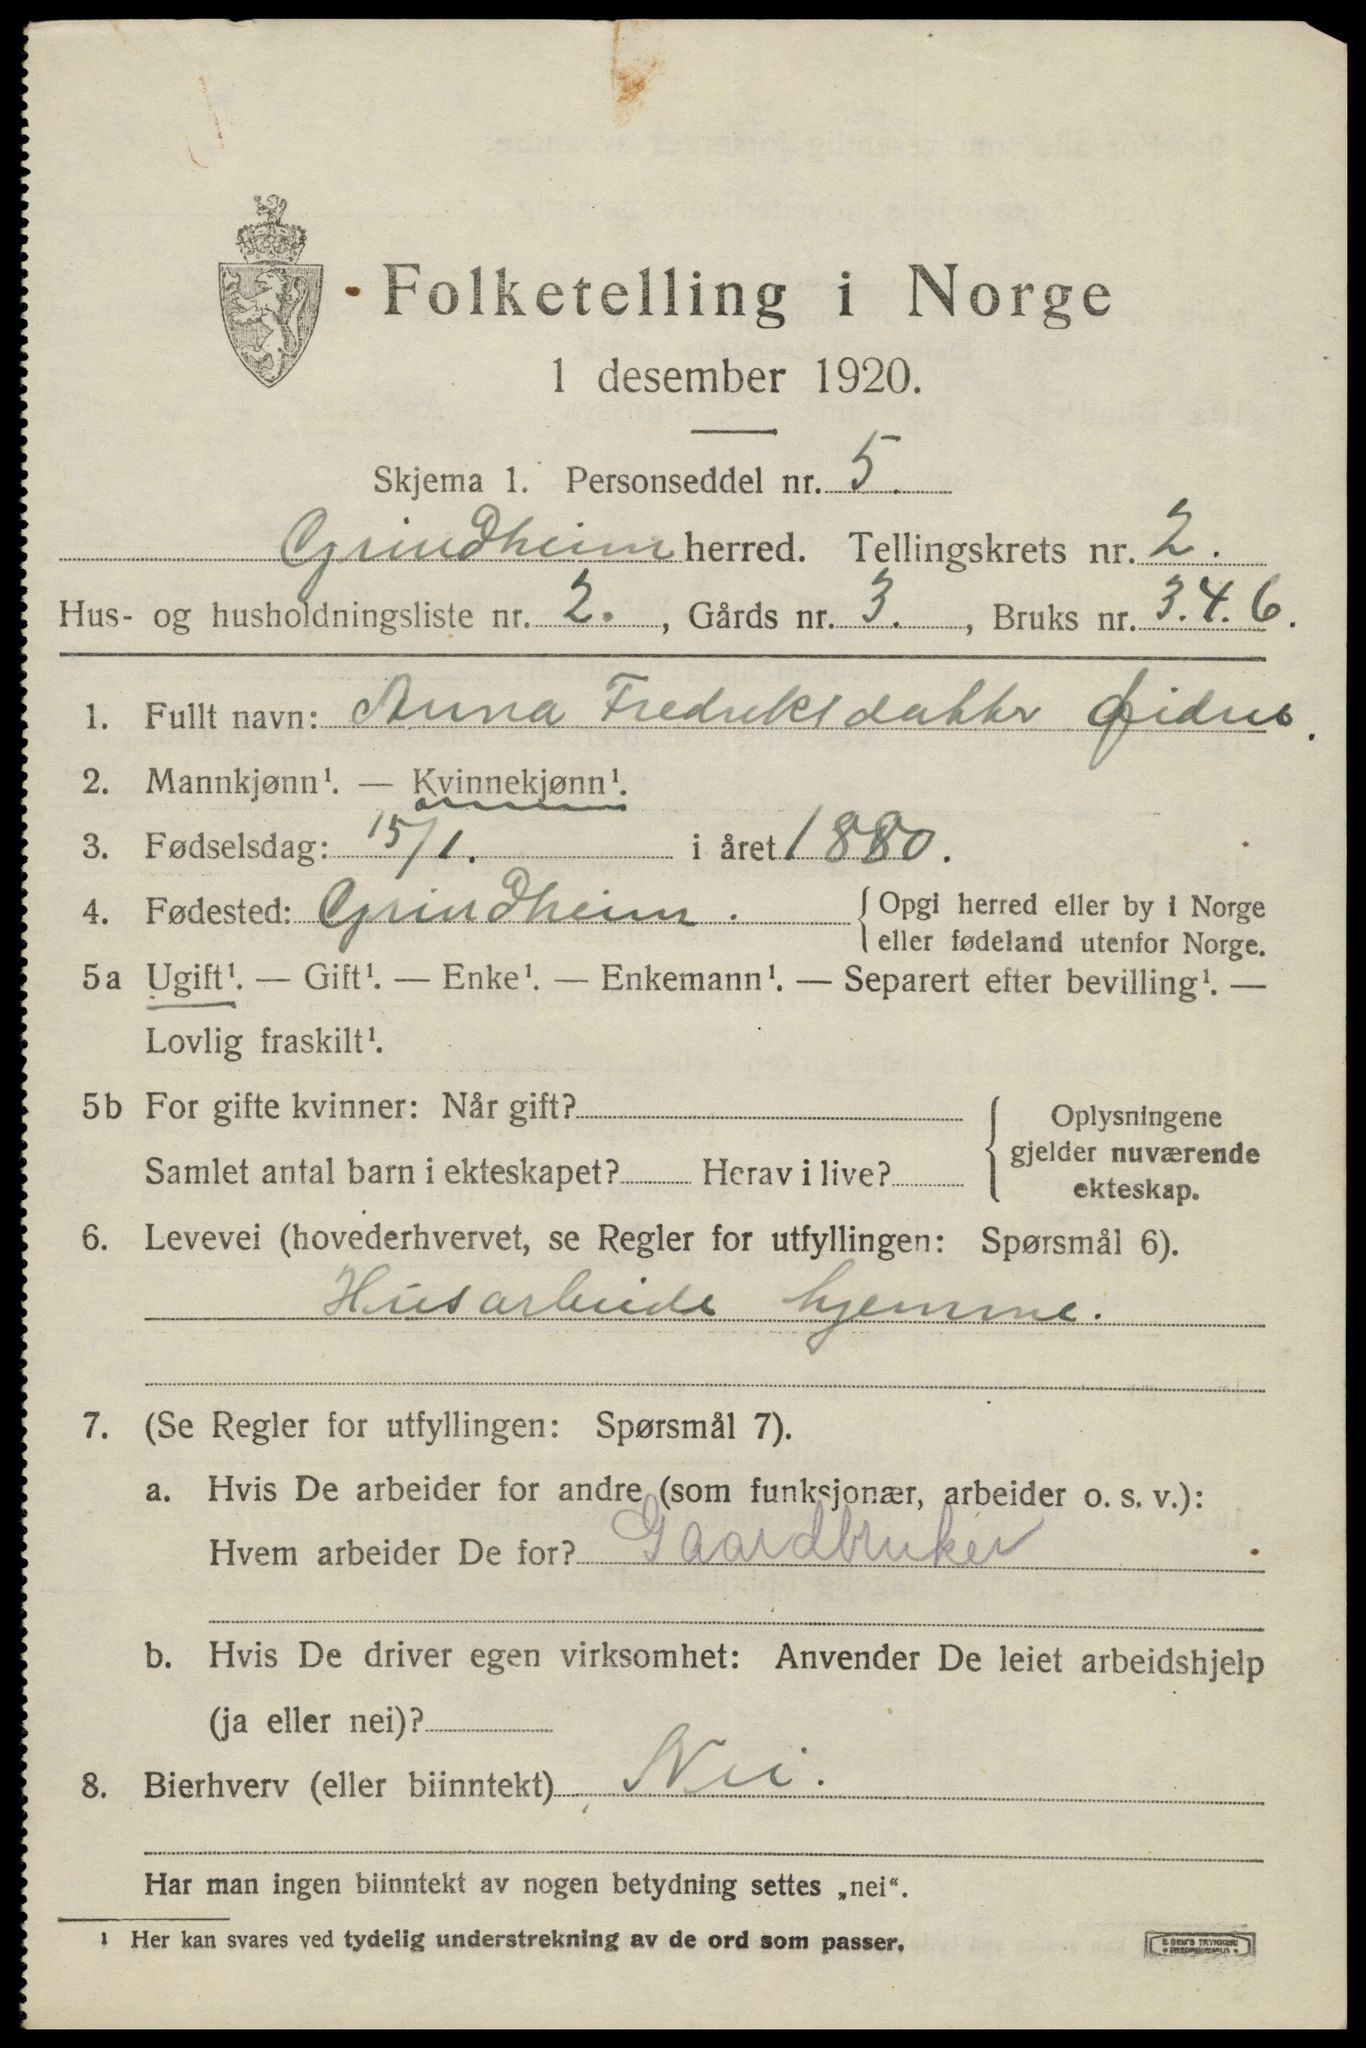 Folketelling i Norge
1 desember 1920.
Skjema 1. Personseddel nr. 5.
Grindheim herred. Tellingskrets nr. 2.
Hus- og husholdningsliste nr. 2. , Gårds nr. 3. , Bruks nr. 3.4.6.
1. Fullt navn: Anna Fredriksdatter
2. Mannkjønn¹. — Kvinnekjønn¹.
3. Fødselsdag: 15/1. i året 1880.
4. Fødested: Grindheim. { Opgi herred eller by i Norge
eller fødeland utenfor Norge.
5a Ugift¹. — Gift¹. — Enke¹. — Enkemann¹. — Separert efter bevilling¹. —
Lovlig fraskilt¹.
5b For gifte kvinner: Når gift?
Samlet antal barn i ekteskapet? Herav i live?
{ Oplysningene
gjelder nuværende
ekteskap.
6. Levevei (hovederhvervet, se Regler for utfyllingen: Spørsmål 6).
Husarbeide hjemme.
7. (Se Regler for utfyllingen: Spørsmål 7).
a. Hvis De arbeider for andre (som funksjonær, arbeider o. s. v.):
Hvem arbeider De for? Gaardbruker
b. Hvis De driver egen virksomhet: Anvender De leiet arbeidshjelp
(ja eller nei)?
8. Bierhverv (eller biinntekt) Nei.
Har man ingen biinntekt av nogen betydning settes „nei“.
¹ Her kan svares ved tydelig understrekning av de ord som passer.